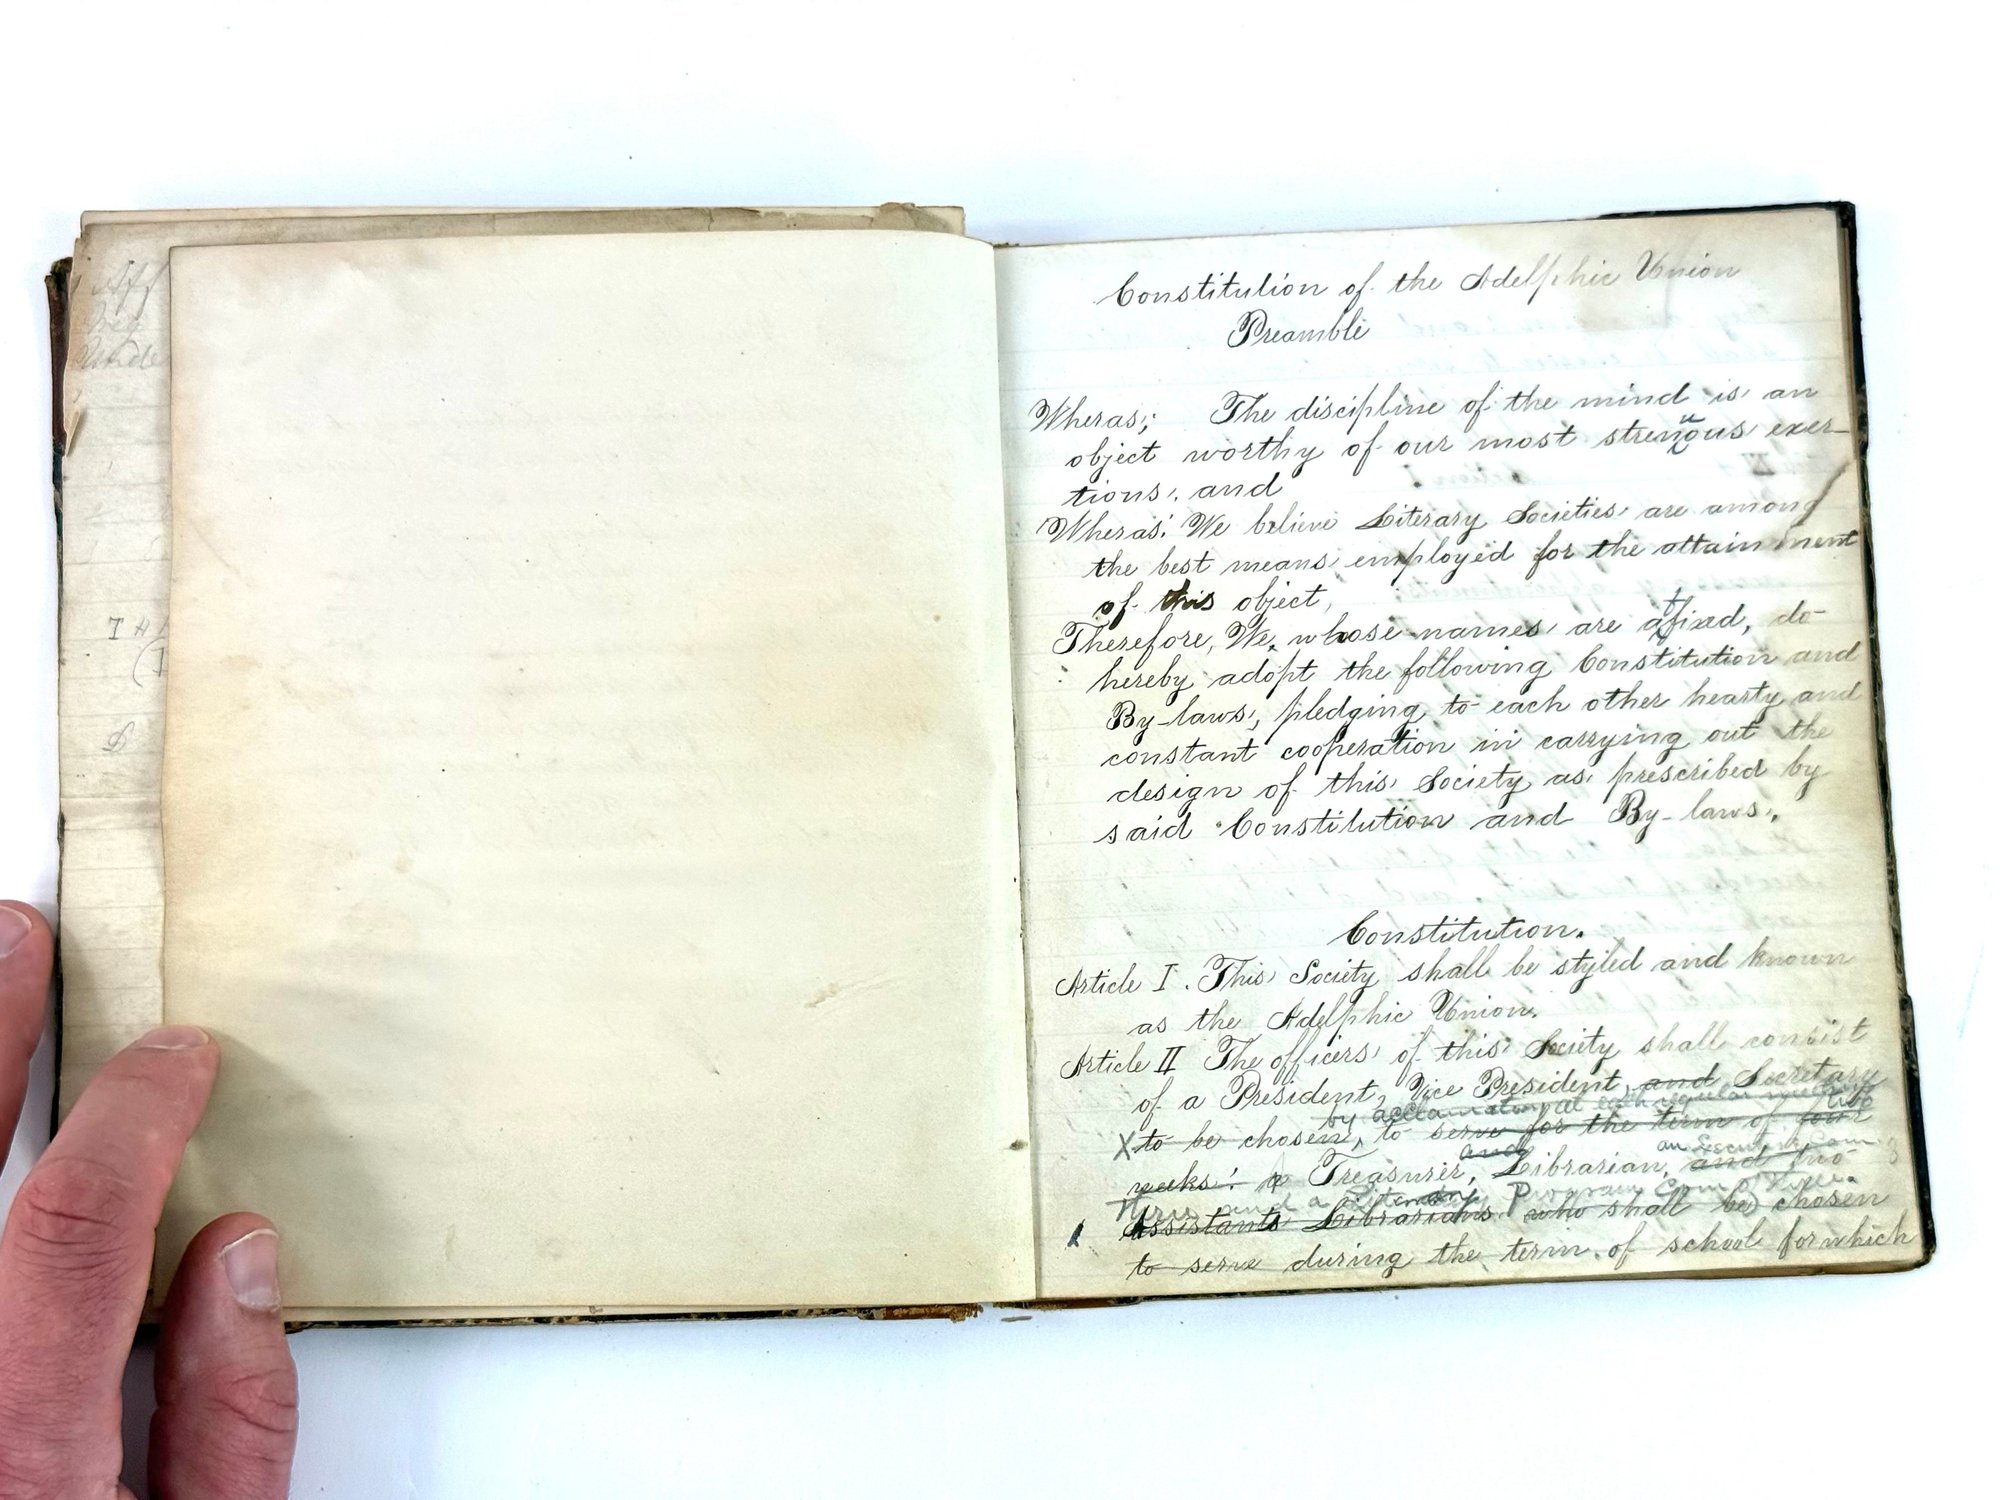 Aff
Unde
Constitution of the Adelphic Union
Preamble
Wheras; The discipline of the mind is an
object worthy of our most strenuous exer-
tions, and
Wheras, We believe Literary Societies are among
the best means employed for the attainment
of this object,
Therefore, We, whose names are affixed, do
hereby adopt the following Constitution and
By-laws, pledging to each other hearty and
constant cooperation in carrying out the
design of this Society as prescribed by
said Constitution and By-laws.
Constitution.
Article I. This Society shall be styled and known
as the Adelphic Union.
Article II The officers of this Society shall consist
of a President, Vice President, and Secretary
by acclamation at each regular meeting
X to be chosen, to serve for the term of four
and an Executive Com.
weeks: Treasurer, Librarian, and two
Three and a Literary Program Com. of three.
Assistants Librarians who shall be chosen
to serve during the term of school for which